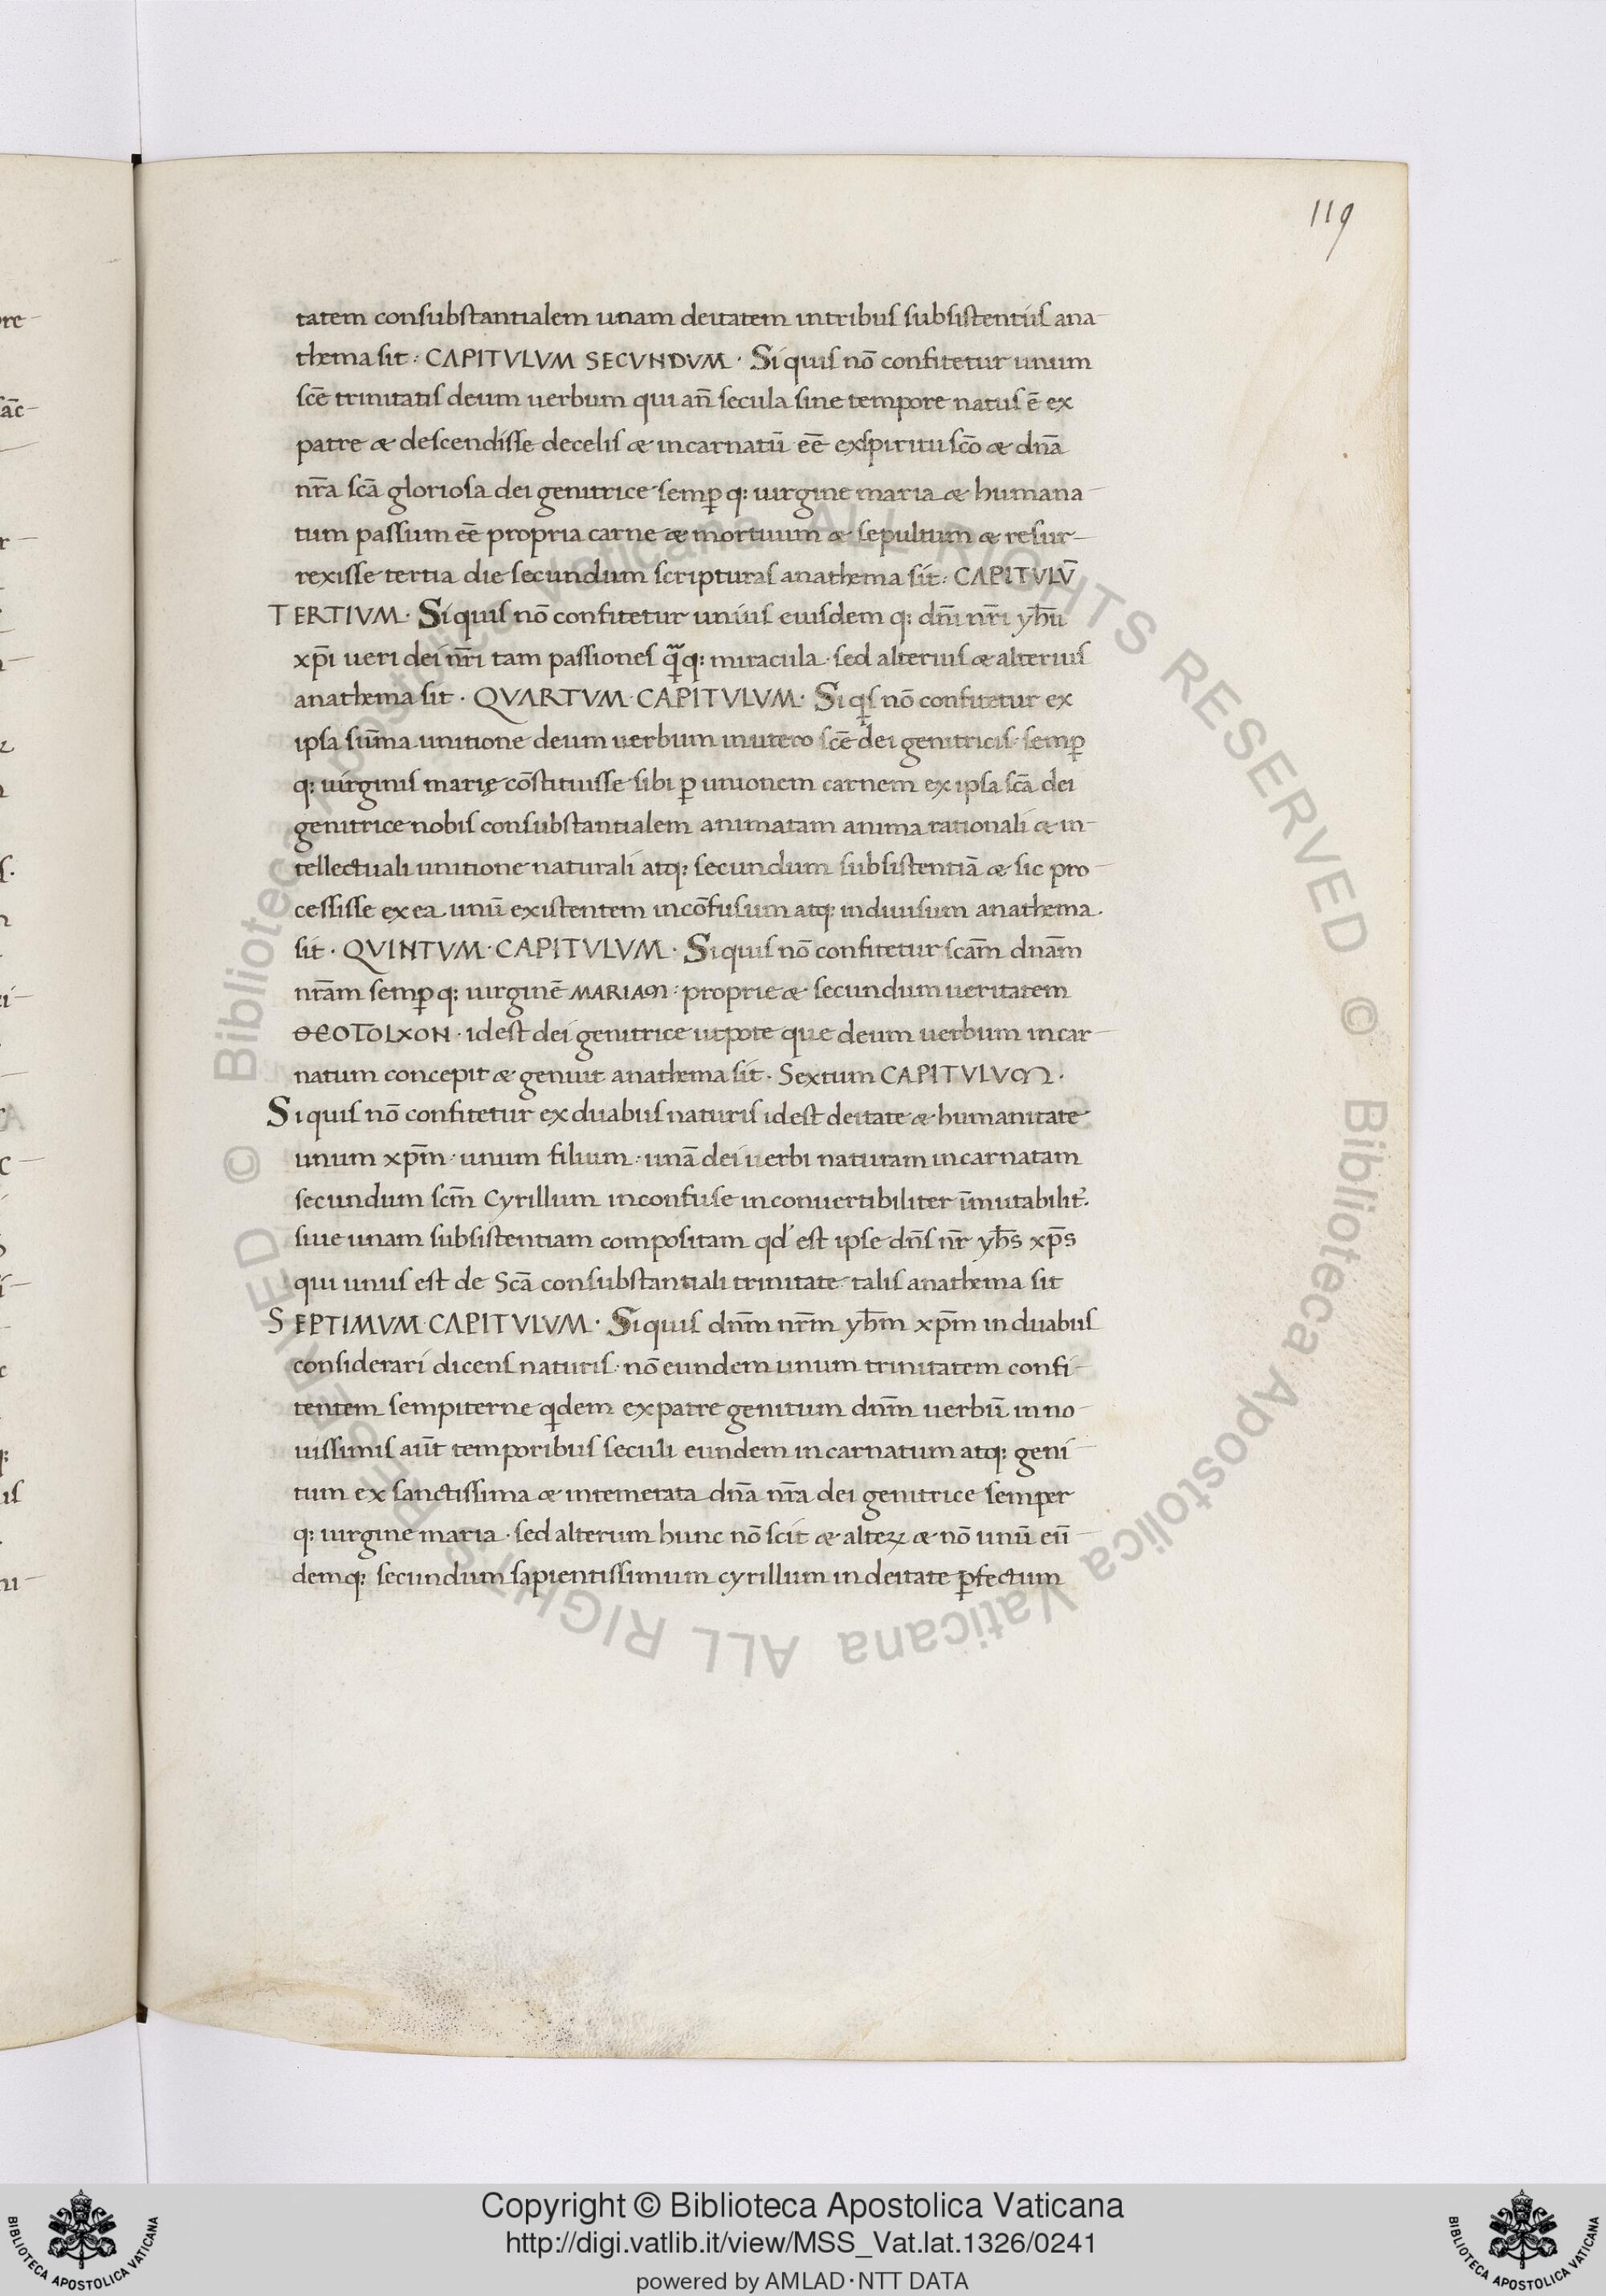 119
tatem consubstantialem unam deitatem in tribus subsistentiis ana-
thema sit · CAPITVLVM SECVNDVM · Si quis nō confitetur unum
scē trinitatis deum uerbum qui an̄ secula sine tempore natus ē ex
patre & descendisse de celis & incarnatū eē ex spiritu scō & dn̄a
nr̄a scā gloriosa dei genitrice semꝑ q: uirgine maria & humana-
tum passum eē propria carne & mortuum & sepultum & resur-
rexisse tertia die secundum scripturas anathema sit · CAPITVLV̄
TERTIVM · Si quis nō confitetur unius eiusdem q: dn̄i nr̄i yh̄u
xp̄i ueri dei nr̄i tam passiones q̄q: miracula · sed alterius & alterius
anathema sit · QVARTVM · CAPITVLVM · Si qs nō confitetur ex
ipsa sūma unitione deum uerbum in utero scē dei genitricis · semꝑ
q: uirginis marię cōstituisse sibi ꝑ unionem carnem ex ipsa scā dei
genitrice nobis consubstantialem animatam anima rationali & in-
tellectuali unitione naturali atq: secundum subsistentiā & sic pro-
cessisse ex ea unū existentem incōfusum atq: indiuisum anathema ·
sit · QVINTVM · CAPITVLVM · Si quis nō confitetur scām dn̄am
nr̄am semꝑ q: uirginē MARIAM · proprie & secundum ueritatem
ΘEOTOLXON · id est dei genitrice utpote que deum uerbum incar-
natum concepit & genuit anathema sit · Sextum CAPITVLVM ·
Si quis nō confitetur ex duabus naturis id est deitate & humanitate
unum xp̄m · unum filium · unā dei uerbi naturam incarnatam
secundum scm̄ Cyrillum inconfuse inconuertibiliter īmutabilit̉.
siue unam subsistentiam compositam qd' est ipse dn̄s nr̄ yh̄s xp̄s
qui unus est de Scā consubstantiali trinitate · talis anathema sit
SEPTIMVM CAPITVLVM · Si quis dn̄m nr̄m yh̄m xp̄m in duabus
considerari dicens naturis · nō eundem unum trinitatem confi-
tentem sempiterne qdem ex patre genitum dn̄m uerbū in no-
uissimis aūt temporibus seculi eundem incarnatum atq: geni-
tum ex sanctissima & intemerata dn̄a nr̄a dei genitrice semper
q: uirgine maria · sed alterum hunc nō scit & alteꝝ & nō unū eū-
demq: secundum sapientissimum cyrillum in deitate ꝑfectum
© Biblioteca Apostolica Vaticana ALL RIGHTS RESERVED © Biblioteca Apostolica Vaticana ALL RIGHTS RESERVED
Copyright © Biblioteca Apostolica Vaticana
http://digi.vatlib.it/view/MSS_Vat.lat.1326/0241
powered by AMLAD·NTT DATA
BIBLIOTECA APOSTOLICA VATICANA
BIBLIOTECA APOSTOLICA VATICANA